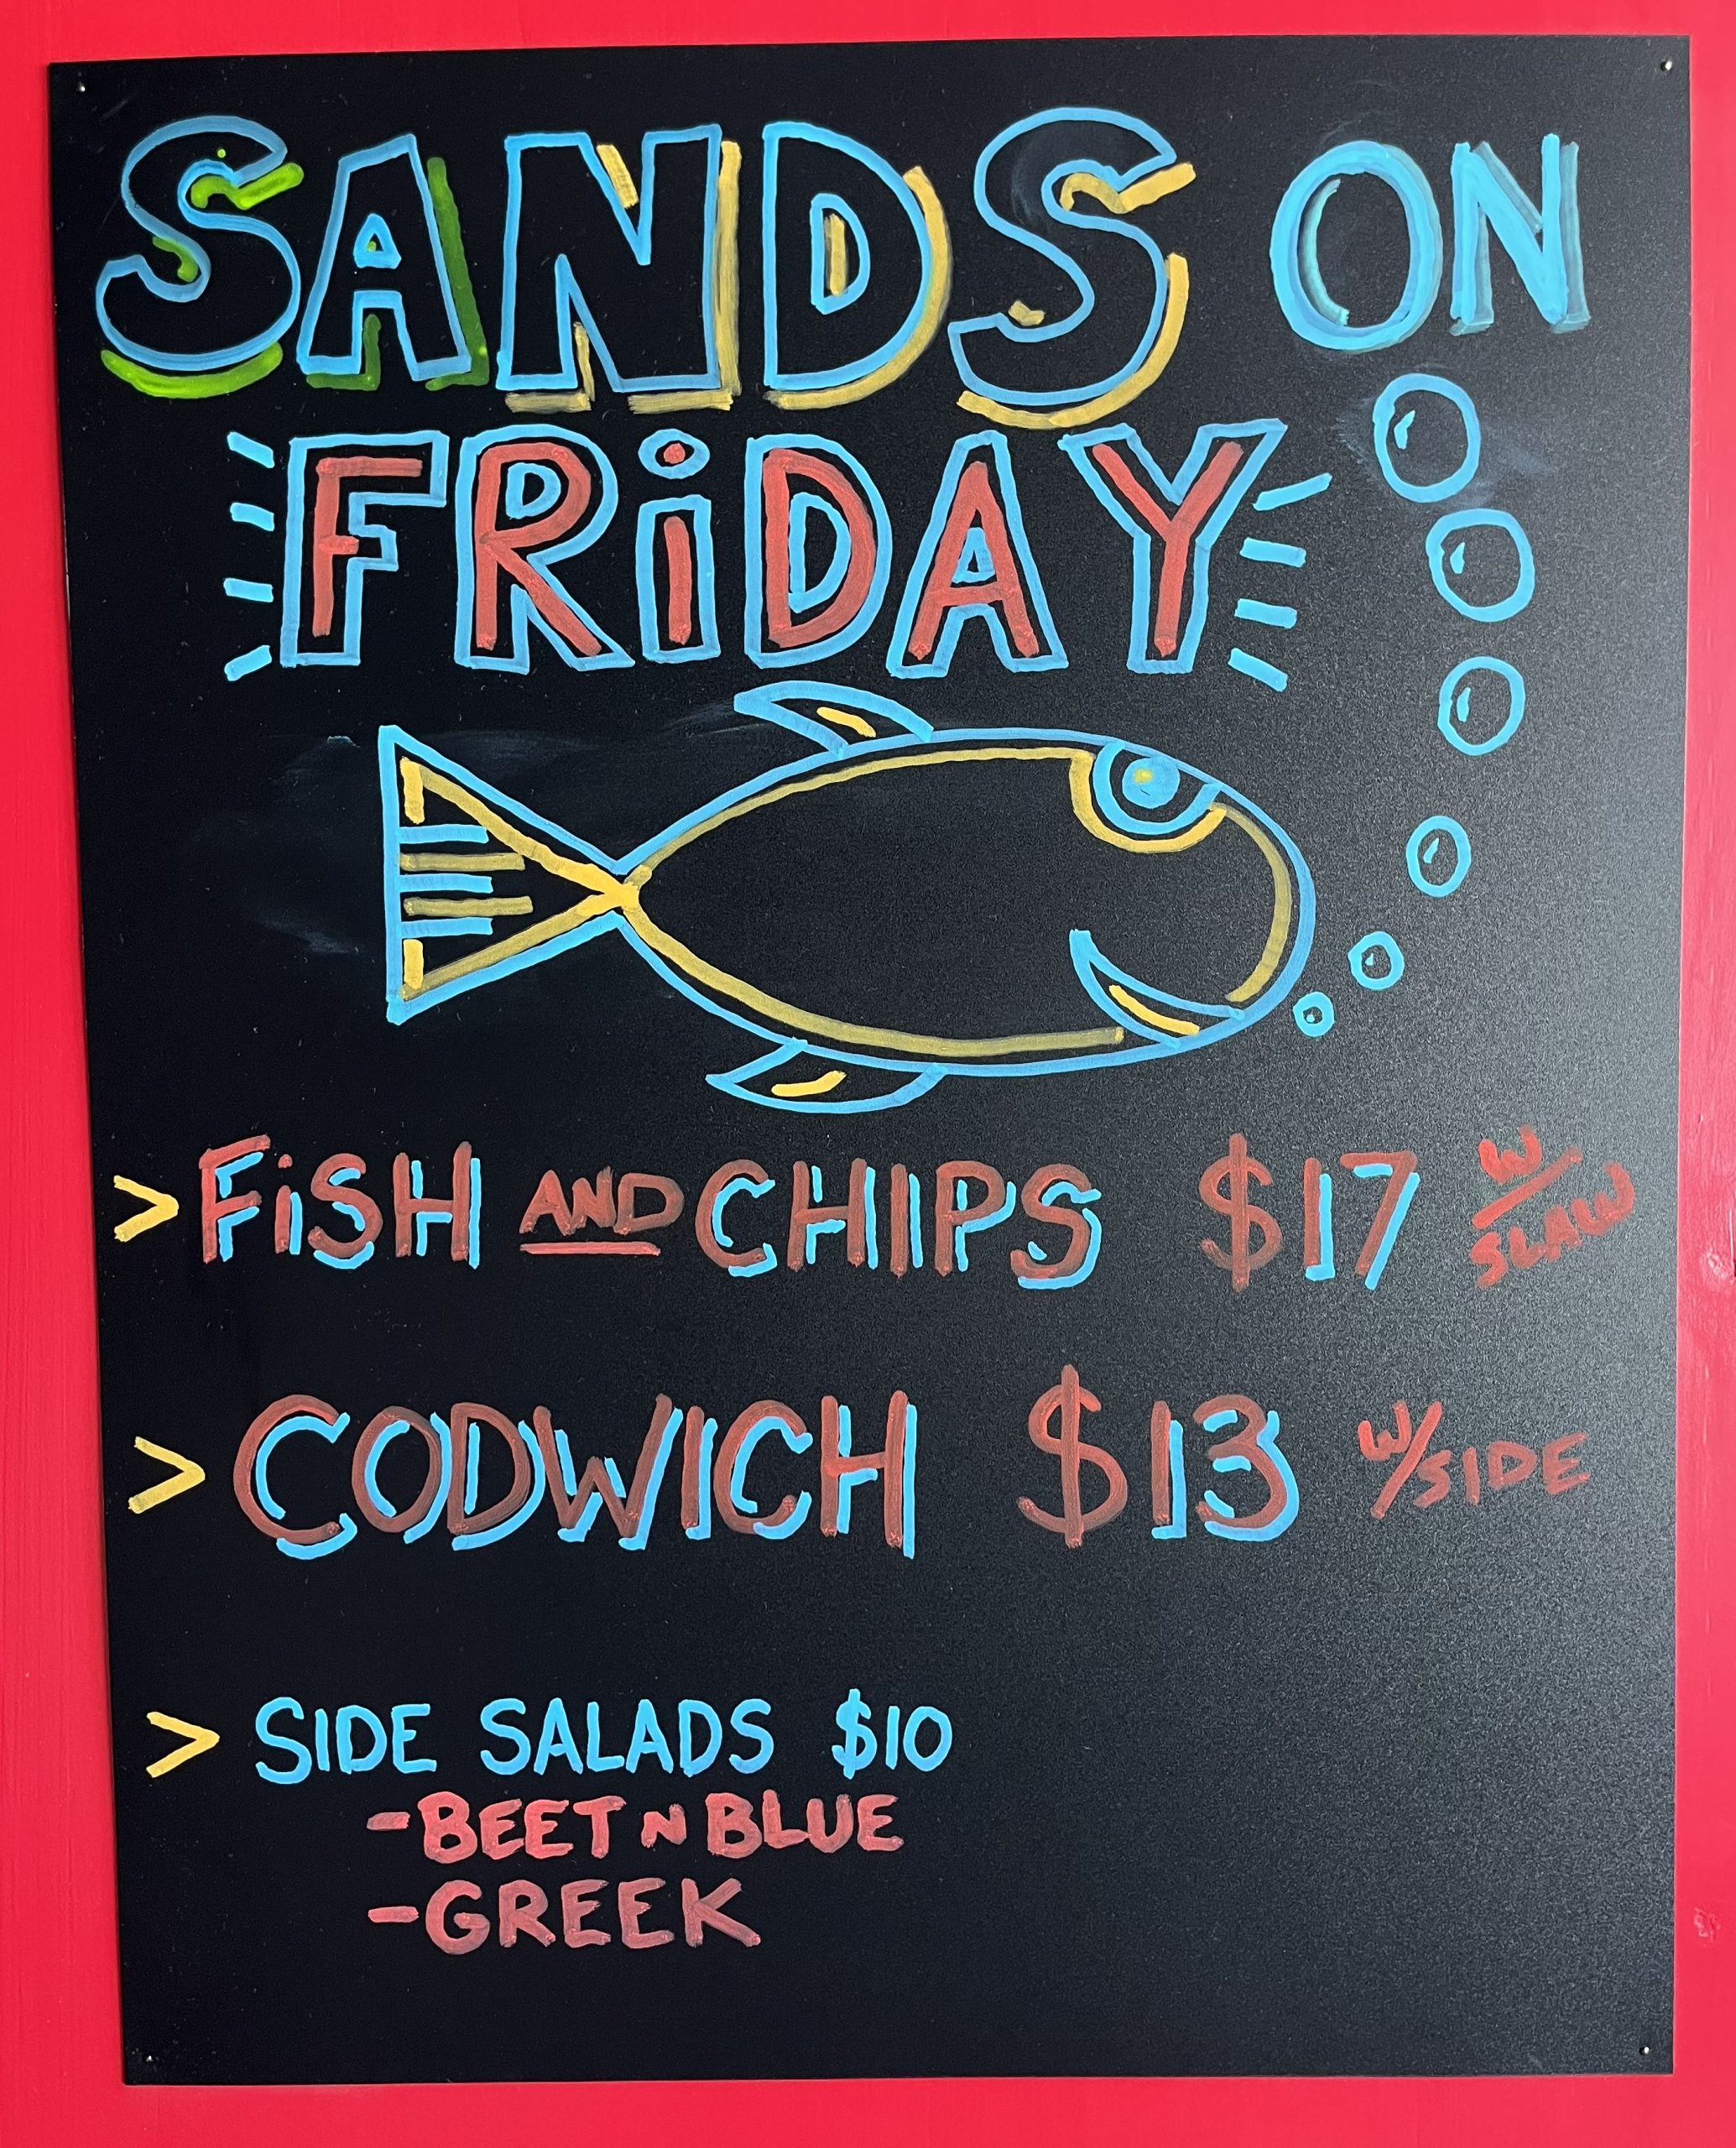 SANDS ON
FRiDAY
> FiSH AND CHIPS $17 W/ SLAW
> CODWICH $13 W/SIDE
> SIDE SALADS $10
-BEET N BLUE
-GREEK